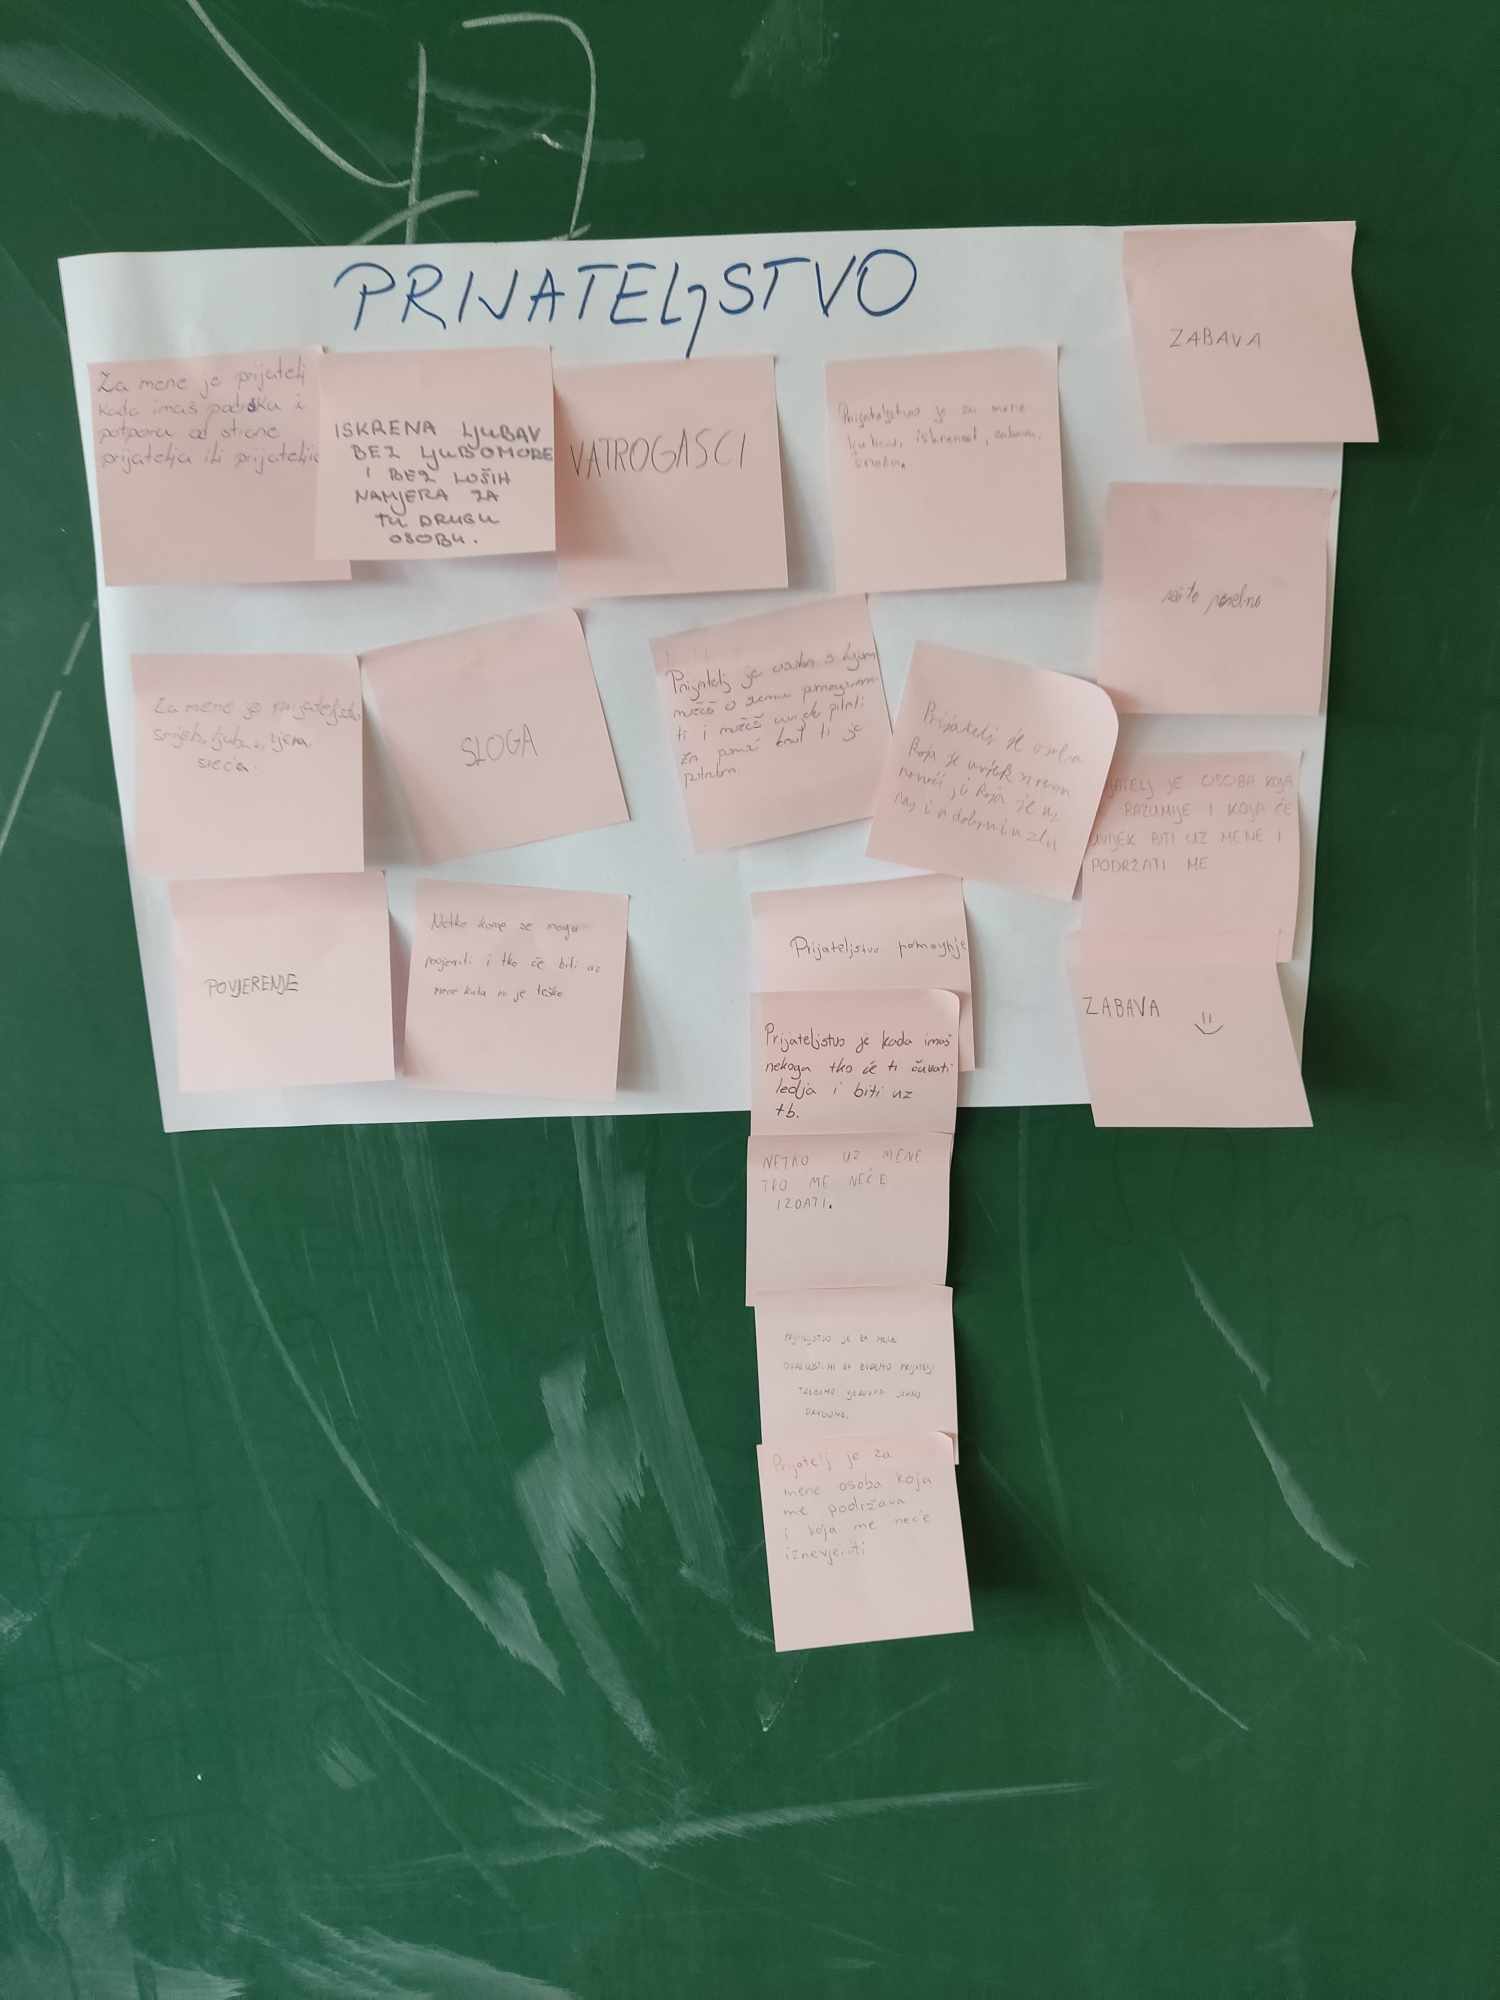 PRIJATELJSTVO
Za mene je prijatelj
kada imaš podrška i
potpora od strane
prijatelja ili prijateljic
ISKRENA LJUBAV
BEZ LJUBOMORE
I BEZ LOŠIH
NAMJERA ZA
TU DRUGU
OSOBU.
VATROGASCI
Prijateljstvo je za mene
iskrenost, zabava,
ZABAVA
nešto posebno
Za mene je prijateljstvo
smijeh, ljubav,
sreća.
SLOGA
Prijatelj je osoba s kojom
možeš
ti i možeš uvijek pitati
za pomoć kad ti je
Prijatelj je osoba
koja je uvijek spremna
pomoći, i koja je uz
nas i u dobrom i u zlu
JATELJ JE OSOBA KOJA
RAZUMIJE I KOJA ĆE
UVIJEK BITI UZ MENE I
PODRŽATI ME
POVJERENJE
Netko kome se mogu
povjeriti i tko će biti uz
mene kada mi je teško
Prijateljstvo pomaganje
Prijateljstvo je kada imaš
nekoga tko će ti čuvati
ledja i biti uz
tb.
NETKO UZ MENE
TKO ME NEĆE
IZDATI.
ZABAVA
JE ZA MENE
PRIJATELJ
Prijatelj je za
mene osoba koja
me podržava
i koja me neće
iznevjeriti